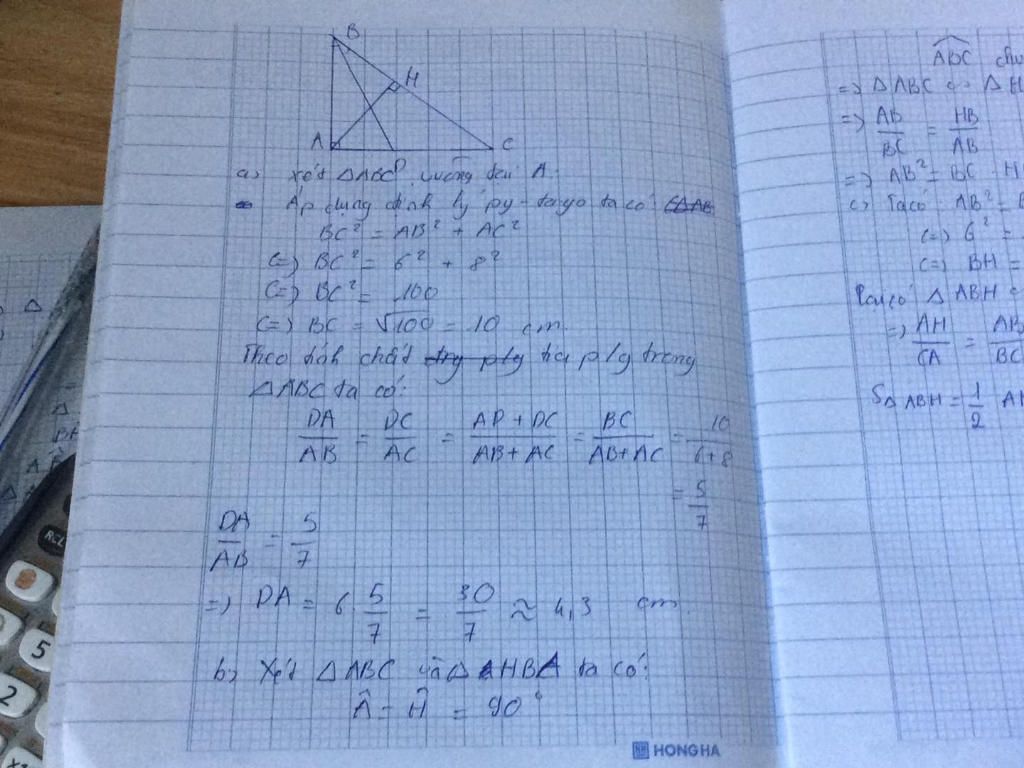 B
H
A
D
C
a) Xét △ABC vuông tại A
Áp dụng định lý py-ta-go ta có
BC² = AB² + AC²
(=) BC² = 6² + 8²
(=) BC² = 100
(=) BC = √100 = 10 cm
Theo tính chất tia p/g trong
△ABC ta có:
DA/AB = DC/AC = AD + DC/AB + AC = BC/AB + AC = 10/6+8
= 5/7
DA/AB = 5/7
=) DA = 6 5/7 = 30/7 ≈ 4,3 cm
b) Xét △ABC và △HBA ta có:
Â = Ĥ = 90°
HONG HA
ABC chu
=) △ABC ∽ △H
=) AB/BC = HB/AB
=) AB² = BC · H
c) Ta có AB² = B
(=) 6² =
(=) BH =
Ta có △ABH ∽
=) AH/CA = AB/BC
S△ABH = 1/2 AH
RCL
5
2